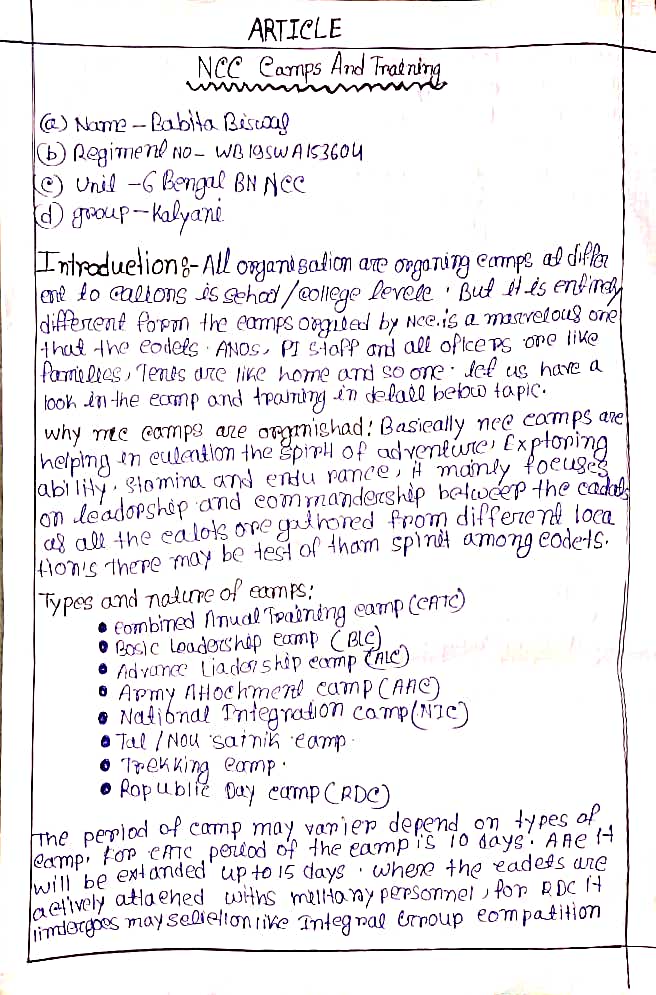 ARTICLE
NCC Camps And Training
(a) Name - Babita Biswas
(b) Regiment NO - WB19SWA153604
(c) Unit - 6 Bengal BN NCC
(d) group - Kalyani
Introduction:- All organisation are organing camps at differ
ent lo cations is school/college levele. But it is entirely
different form the camps orgnized by Ncc. is a marvelous one
that the codets. ANOs, PI staff and all oficers are like
families, Tents are like home and so one. let us have a
look in the camp and training in detail below topic.
Why ncc camps are orgnishad! Basically ncc camps are
helping in the spirit of adventure, Exploring
ability. Stamina and endu rance, it mainly focuses
on leadorship and commandership between the cadats
as all the are gathored from different loca
tion's there may be test of tham spirit among codets.
Types and nature of camps:
• Combined Anual Training camp (CATC)
• Basic Leadership camp (BLC)
• Advance Liadership camp (ALC)
• Army Attachment camp (AAC)
• National Integration camp (NIC)
• Tal / Nou sainik camp.
• Trekking camp.
• Ropublic Day camp (RDC)
The period of camp may varier depend on types of
camp. for CATC period of the camp is 10 days. AAC it
will be extanded up to 15 days. where the cadets are
actively attached withs military personnel, for RDC it
may like Integral Group compatition